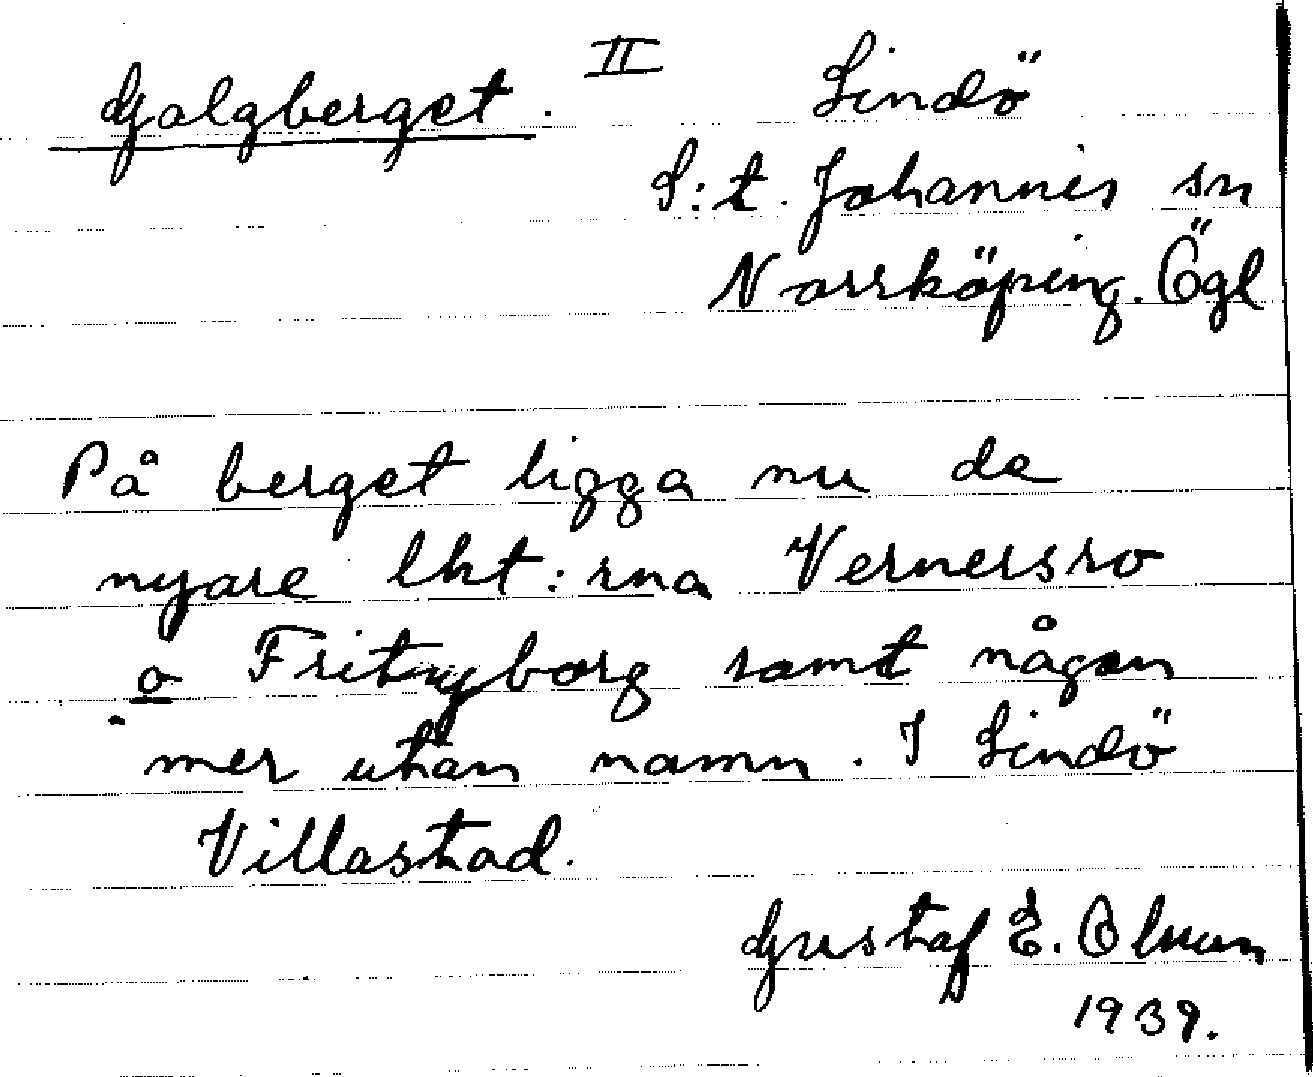 Galgberget. II Lindö
S:t. Johannis sn
Norrköping. Ögl
På berget ligga nu de
nyare lht:rna Vernersro
o Fritzborg samt någon
mer utan namn. I Lindö
Villastad.
Gustaf E. Olson
1939.